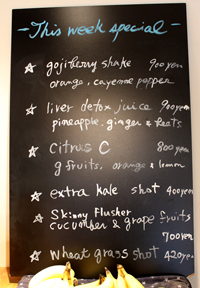 -This week special-
☆ gojiberry shake 900yen
orange, cayenne pepper
☆ liver detox juice 900yen
pineapple, ginger & beets
☆ Citrus C 800yen
g fruits, orange & lemon
☆ extra kale shot 400yen
☆ Skinny Flusher
cucumber & grape fruits
700yen
☆ wheat grass shot 420yen